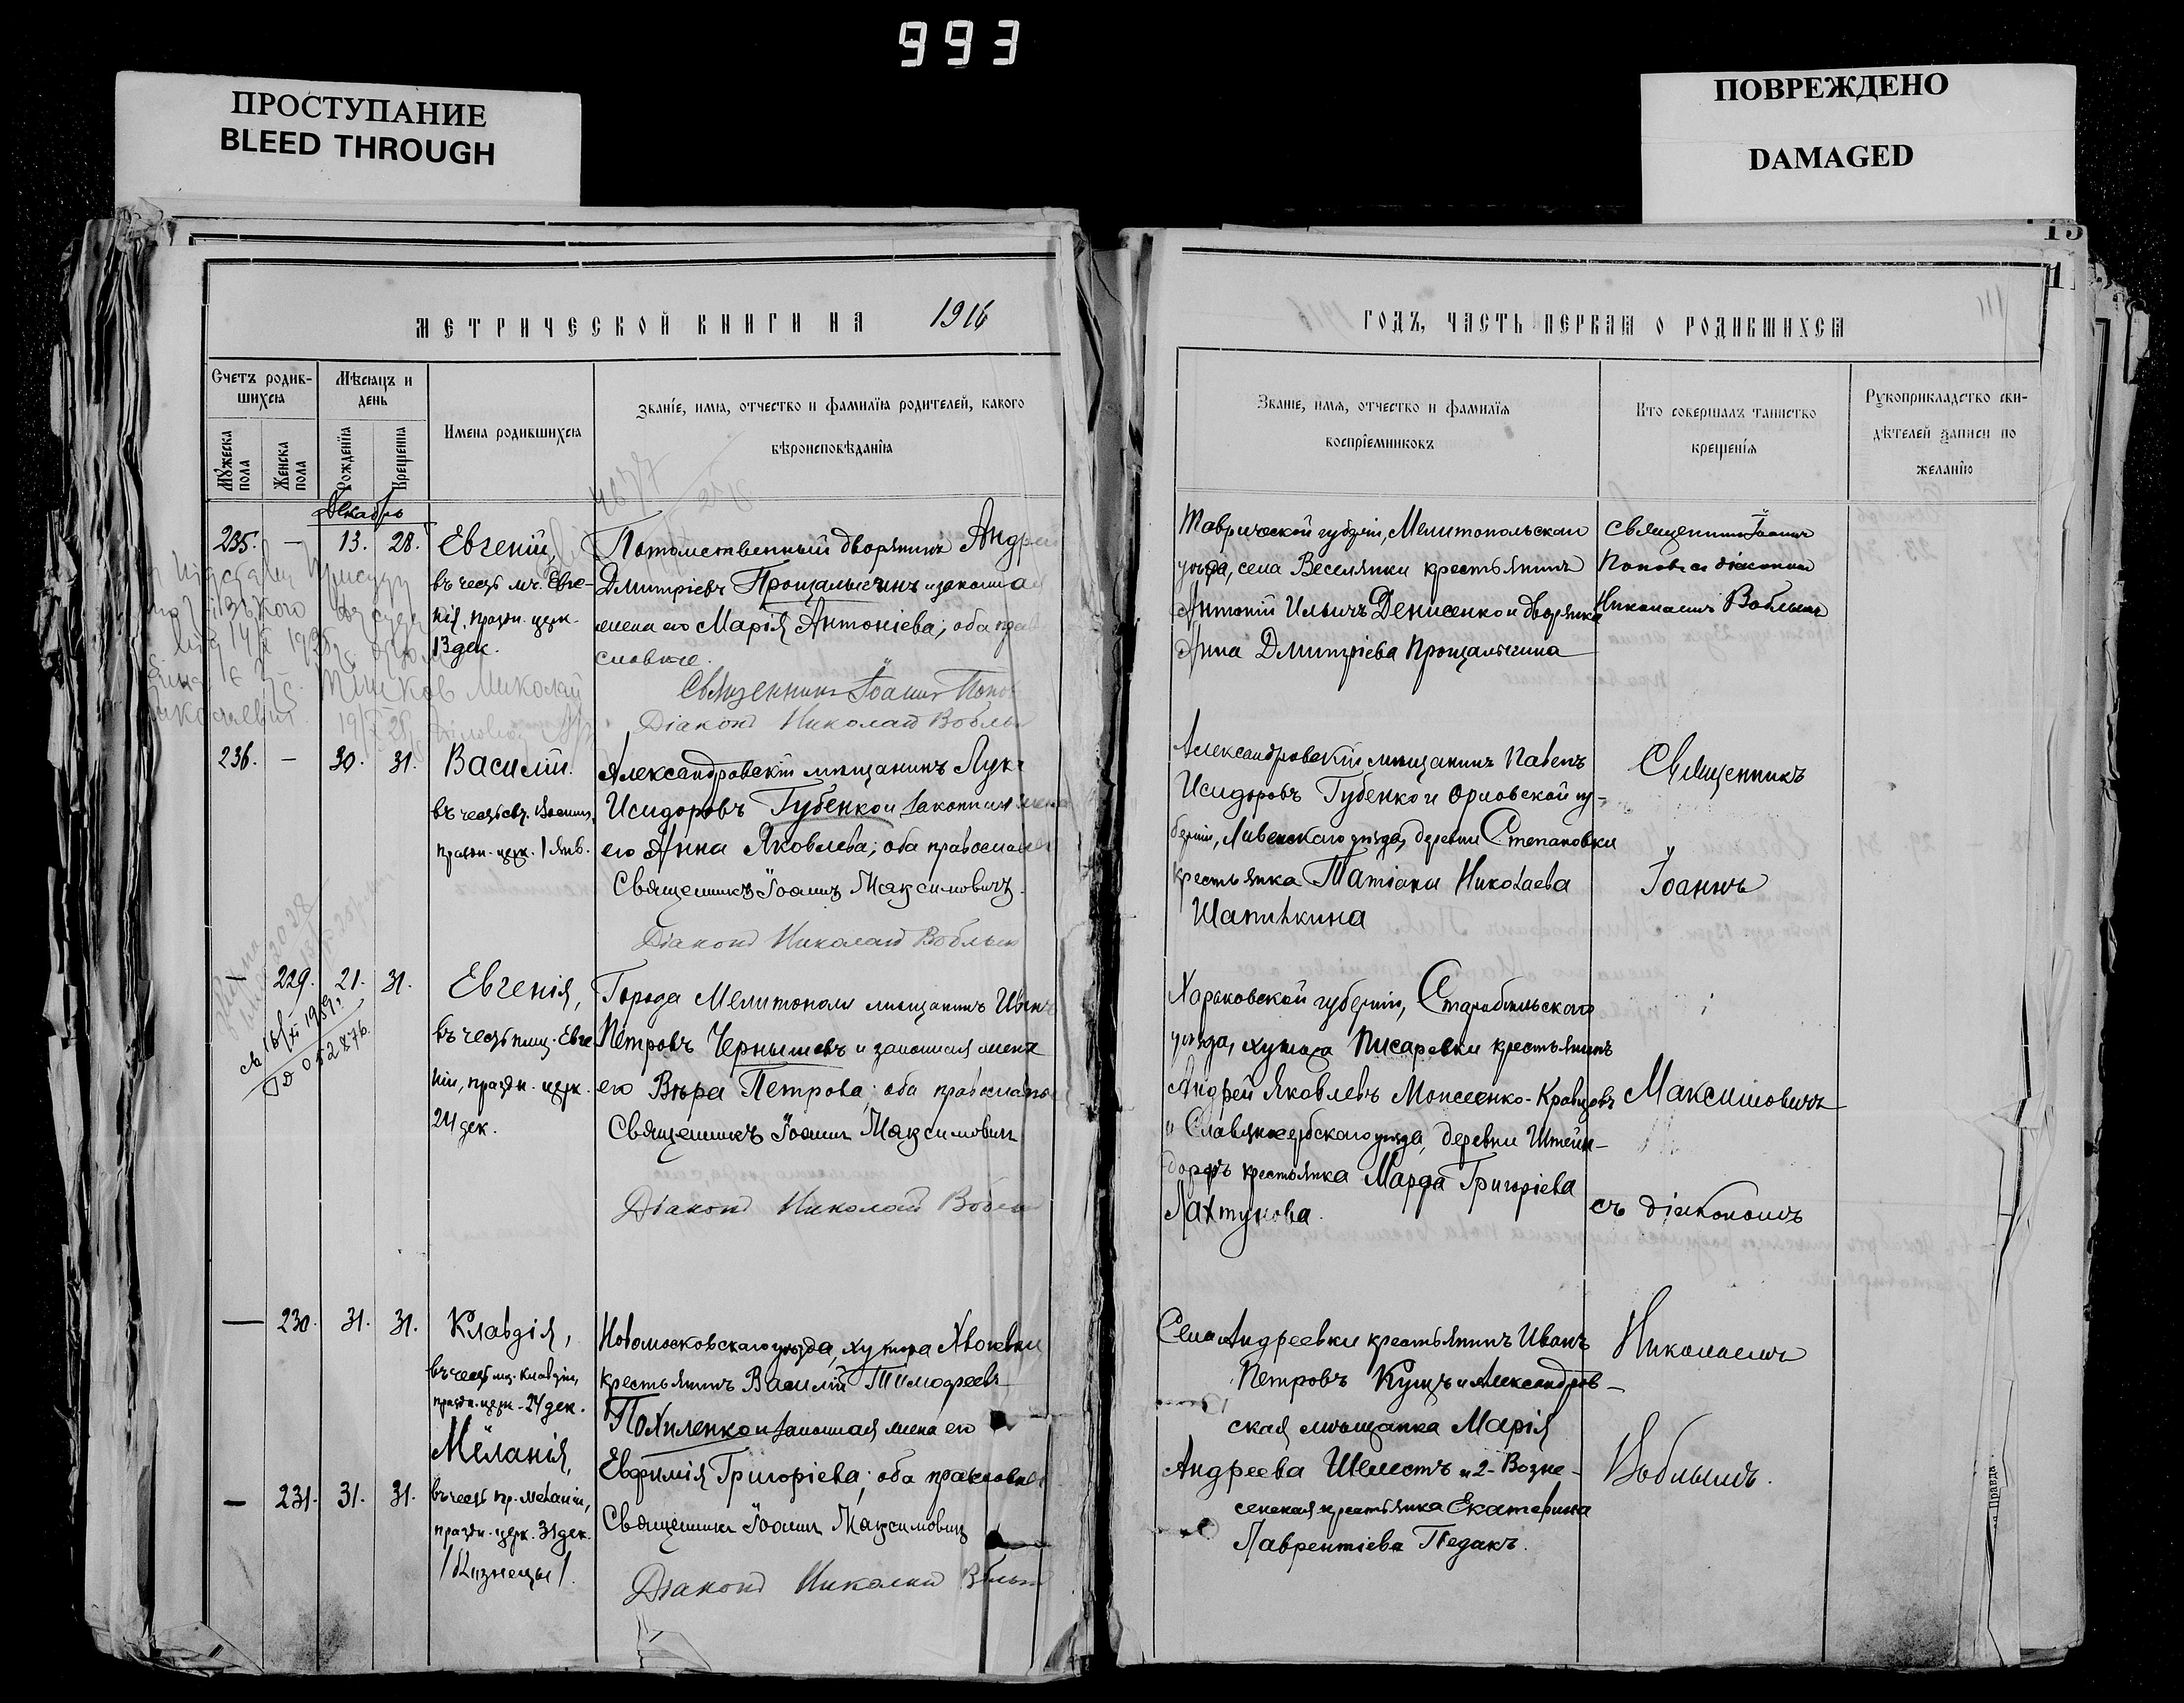 993
ПРОСТУПАНИЕ
BLEED THROUGH
ПОВРЕЖДЕНО
DAMAGED
МЕТРИЧЕСКОЙ КНИГИ НА 1916
Счетъ родив-
шихся
Мѣсяцъ и
день
Мужеска
пола
Женска
пола
Рожденія
Крещенія
Имена родившихся
Званіе, имя, отчество и фамилія родителей, какого
вѣроисповѣданія
Декабрь
235. — 13. 28.
Евгеній,
въ честь мч. Евге-
нія, праздн. церк.
13 дек.
Потомственный дворянинъ Андрей
Дмитріевъ Прощалыгинъ и законная
жена его Марія Антоніева; оба пра
славные.
Священникъ Іоаннъ Попов
Діаконъ Николай Воблый
236. — 30. 31.
Василій.
въ честь св. Василія,
праздн. церк. 1 янв.
Александровскій мѣщанинъ Лука
Исидоровъ Губенко и законная жена
его Анна Яковлева; оба православн
Священникъ Іоаннъ Максимовичъ.
Діаконъ Николай Воблый
— 229. 21. 31.
Евгенія,
въ честь пмц. Евге
ніи, праздн. церк.
24 дек.
16/XI 1959г.
052876.
Города Мелитополя мѣщанинъ Иванъ
Петровъ Чернышевъ и законная жена
его Вѣра Петрова; оба православн
Священникъ Іоаннъ Максимовичъ
Діаконъ Николай Воблый
— 230. 31. 31.
Клавдія,
въ честь мц. Клавдіи,
праздн. церк. 24 дек.
Меланія,
— 231. 31. 31.
въ честь пр. Меланіи,
праздн. церк. 31 дек.
/Близнецы/.
Новомосковскаго уѣзда, хутора
крестьянинъ Василій Тимофеевъ
Похиленко и законная жена его
Евфимія Григоріева; оба православн
Священникъ Іоаннъ Максимовичъ
Діаконъ Николай Воблый
ГОДЪ, ЧАСТЬ ПЕРВАЯ О РОДИВШИХСЯ
Званіе, имя, отчество и фамилія
воспріемниковъ
Кто совершалъ таинство
крещенія
Рукоприкладство сви-
дѣтелей записи по
желанію
Таврической губерніи, Мелитопольскаго
уѣзда, села Веселянки крестьянинъ
Антоній Ильичъ Денисенко и дворянка
Анна Дмитріева Прощалыгина
Священникъ Іоаннъ
Поповъ съ діакономъ
Николаемъ Воблымъ
Александровскій мѣщанинъ Павелъ
Исидоровъ Губенко и Орловской гу-
берніи, Ливенскаго уѣзда, деревни Степановки
крестьянка Татіана Николаева
Шапишкина
Священникъ
Іоаннъ
Харьковской губерніи, Старобѣльскаго
уѣзда, хутора Писаревки крестьянинъ
Андрей Яковлевъ Моисеенко-Кравцовъ
и Славяносербскаго уѣзда, деревни Штейн-
дорфъ крестьянка Марфа Григоріева
Лахтунова.
Максимовичъ
съ діакономъ
Села Андреевки крестьянинъ Иванъ
Петровъ Кущъ и Александров-
ская мѣщанка Марія
Андреева Шелестъ и 2-Возне-
сенская крестьянка Екатерина
Лаврентіева Педакъ.
Николаемъ
Воблымъ.